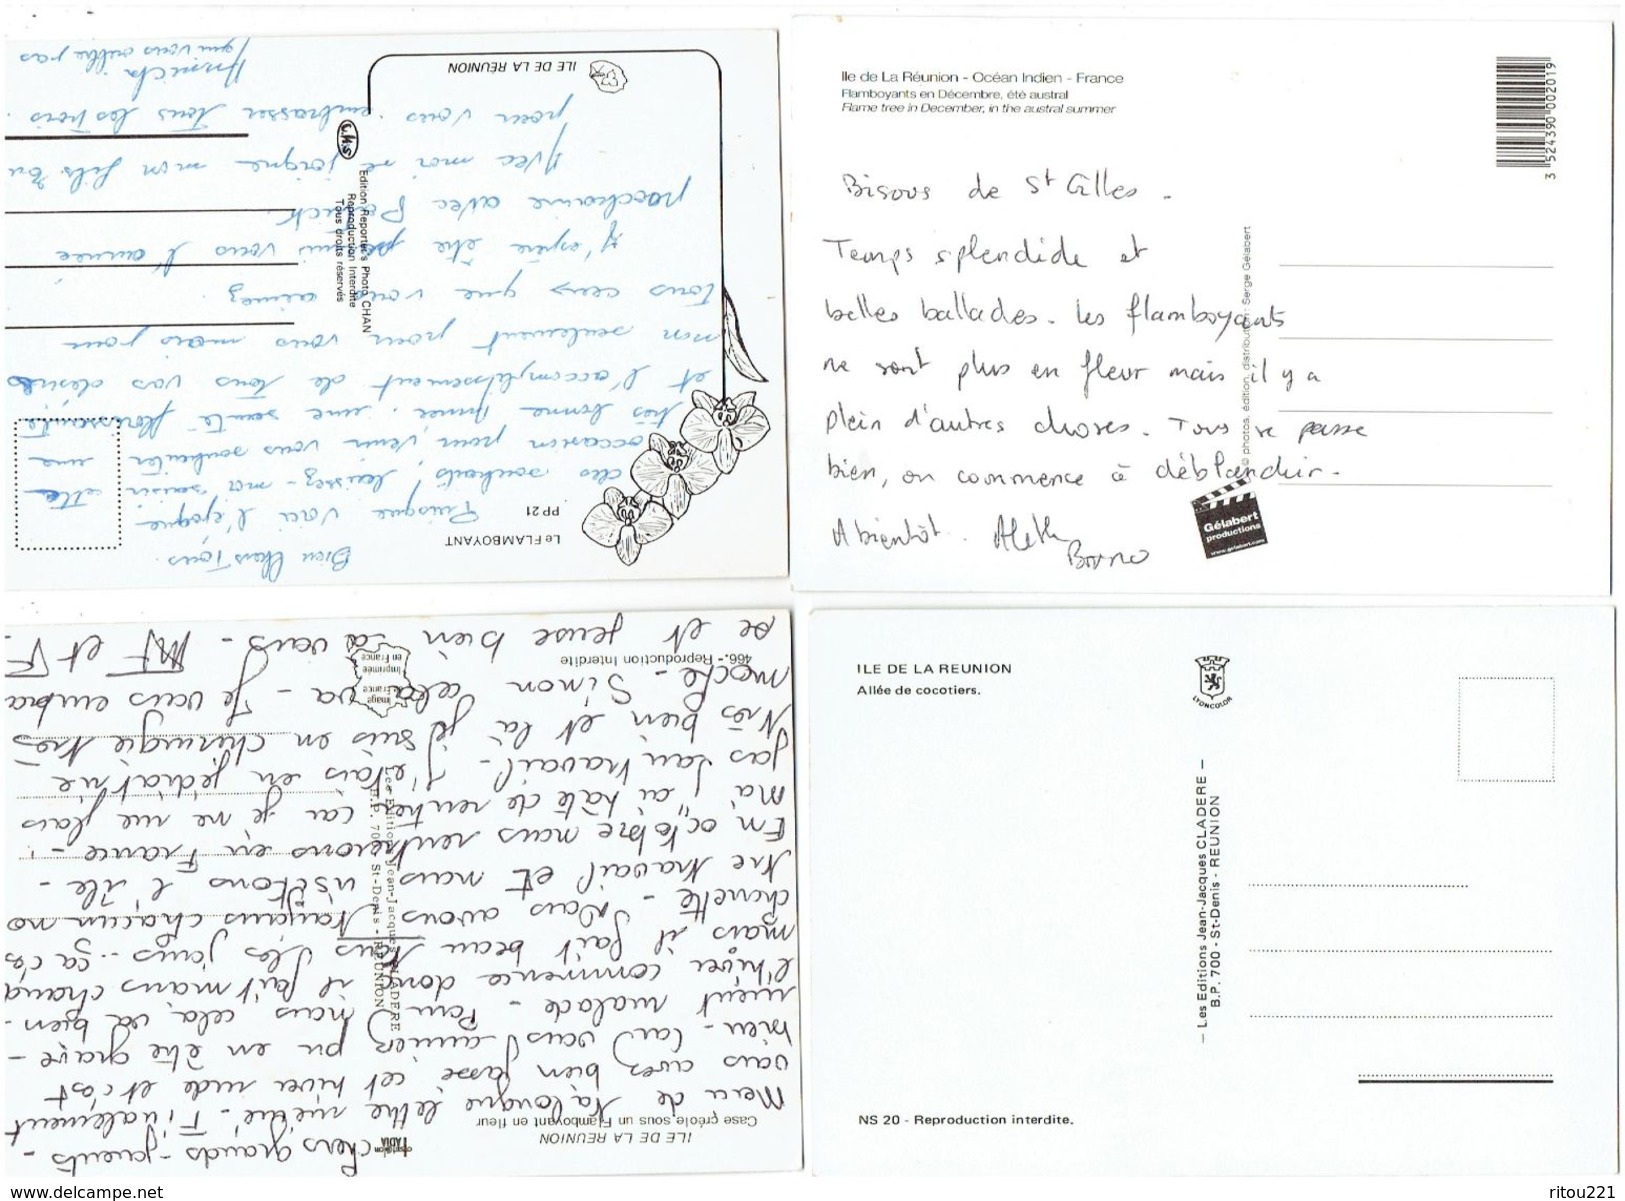 Le FLAMBOYANT
PP 21
ILE DE LA REUNION
L.M.S
Edition Reporter's Photo CHAN
Reproduction Interdite
Tous droits réservés
Bien Chers Tous.
Puisque voici l'époque
des souhaits, laissez-moi saisir cette
occasion pour venir vous souhaiter une
très bonne Année, une santé florissante
et l'accomplissement de tous vos désirs
non seulement pour vous mais pour
tous ceux que vous aimez.
J'espère être parmi vous l'année
prochaine avec
Avec moi se joigne mon fils
pour vous embrasser tous les trois.
qui vous oublie pas
Ile de La Réunion - Océan Indien - France
Flamboyants en Décembre, été austral
Flame tree in December, in the austral summer
3 524390 002019
© photos, édition, distribution Serge Gélabert
Bisous de St Gilles.
Temps splendide et
belles ballades. Les flamboyants
ne sont plus en fleur mais il y a
plein d'autres choses. Tous se passe
bien, on commence à déblanduir.
A bientôt. Aleth
Bruno
Gélabert
productions
www.gelabert.com
ILE DE LA REUNION
Case créole sous un Flamboyant en fleur
466.- Reproduction Interdite
image France
imprimée
en France
Les Editions Jean-Jacques CLADERE
B.P. 700 - St-Denis - REUNION
Chers grands-parents -
Merci de ta longue lettre mérie - Finalement
vous avez bien passé cet hiver rude et c'est
bien - Car vous auriez pu en être grave-
ment malade - Pour nous, cela va bien -
l'hiver commence donc il fait moins chaud
mais il fait beau tous les jours... ça c'es
chouette - Nous avons toujours chacun no
tre travail et nous visitons l'île -
En octobre nous rentrerons en France -
Moi j'ai hâte de rentrer car je ne me plais
pas au travail - J'étais en pédiatrie
très bien et là je suis en chirurgie très
moche - Sinon cela va - Je vous embra
se et pense bien à vous - MF et F -
ILE DE LA REUNION
Allée de cocotiers.
LYONCOLOR
— Les Editions Jean-Jacques CLADERE —
B.P. 700 - St-Denis - REUNION
NS 20 - Reproduction interdite.
www.delcampe.net
ritou221